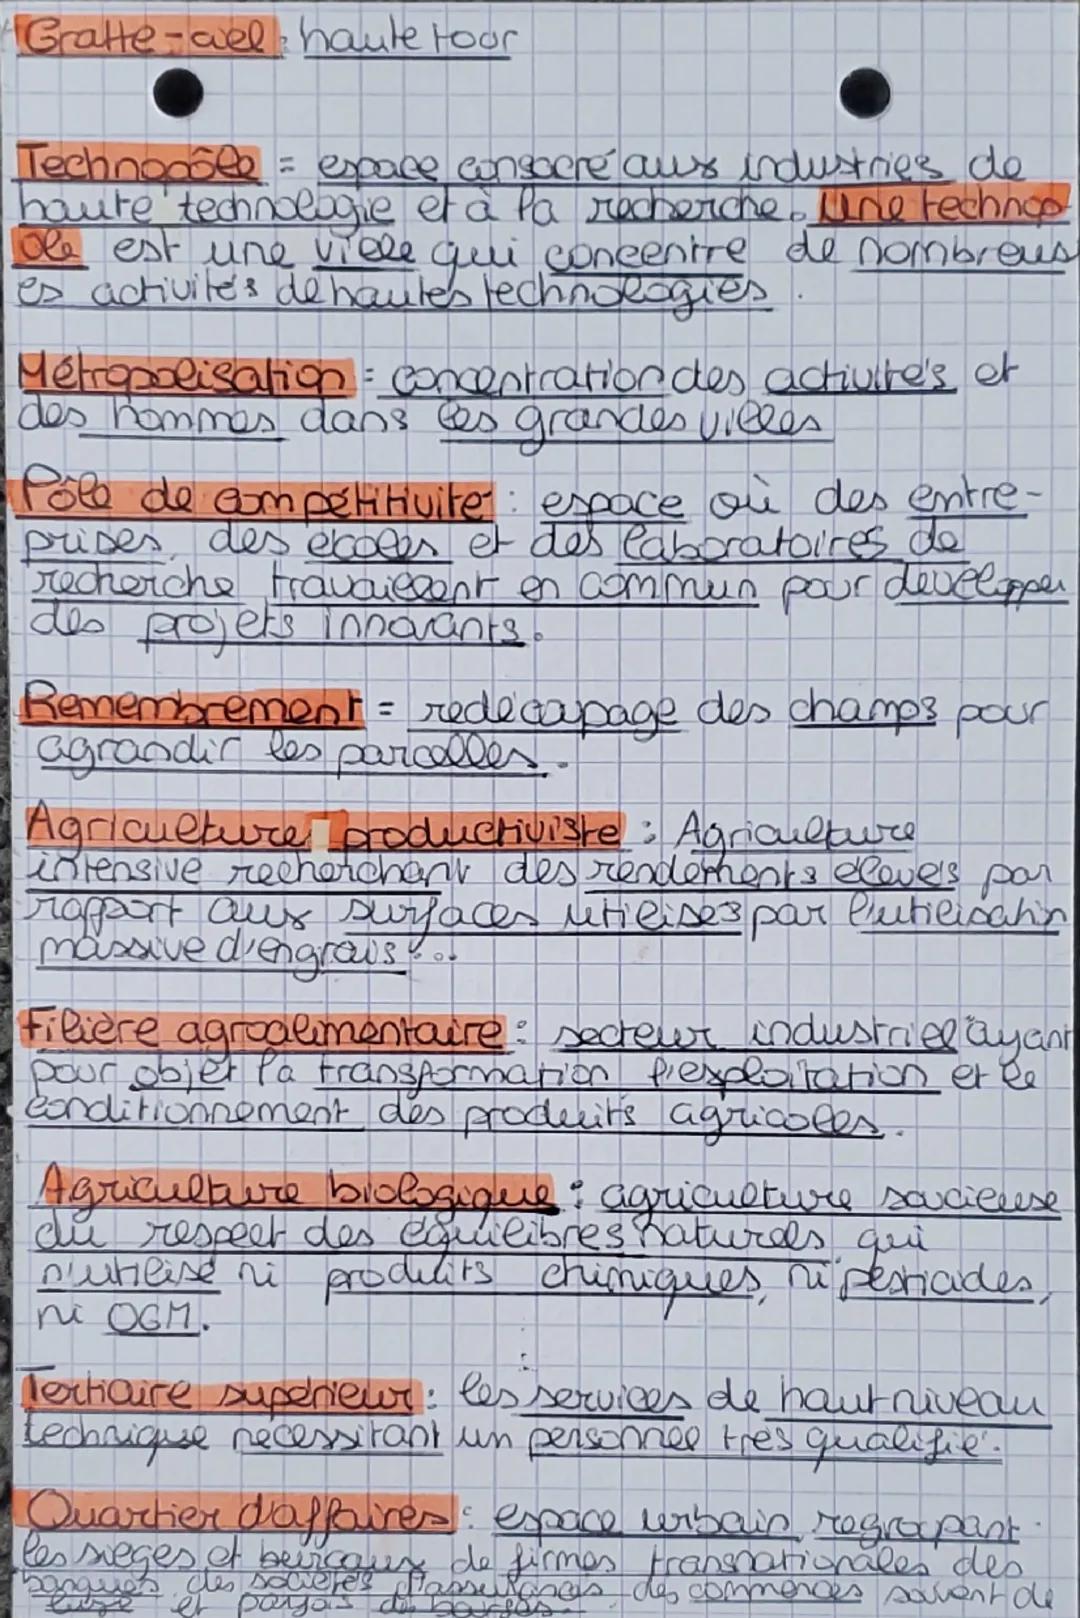 Gratte-ciel : haute tour
Technopôle = espace consacré aux industries de
haute technologie et à la recherche. Une technop-
ole est une ville qui concentre de nombreus
es activités de hautes technologies.
Métropolisation : concentration des activités et
des hommes dans les grandes villes
Pôle de compétitivité : espace où des entre-
prises, des écoles et des laboratoires de
recherche travaillent en commun pour développer
des projets innovants.
Remembrement = redécoupage des champs pour
agrandir les parcelles.
Agriculture productiviste : Agriculture
intensive recherchant des rendements élevés par
rapport aux surfaces utilisés par l'utilisation
massive d'engrais...
Filière agroalimentaire : secteur industriel ayant
pour objet la transformation l'exploitation et le
conditionnement des produits agricoles.
Agriculture biologique : agriculture soucieuse
du respect des équilibres naturels qui
n'utilise ni produits chimiques, ni pesticides,
ni OGM.
Tertiaire supérieur : les services de haut niveau
technique nécessitant un personnel très qualifié.
Quartier d'affaires : espace urbain regroupant
les sièges et bureaux de firmes transnationales des
banques, des sociétés d'assurances, des commerces souvent de
luxe et parfois des bourses.